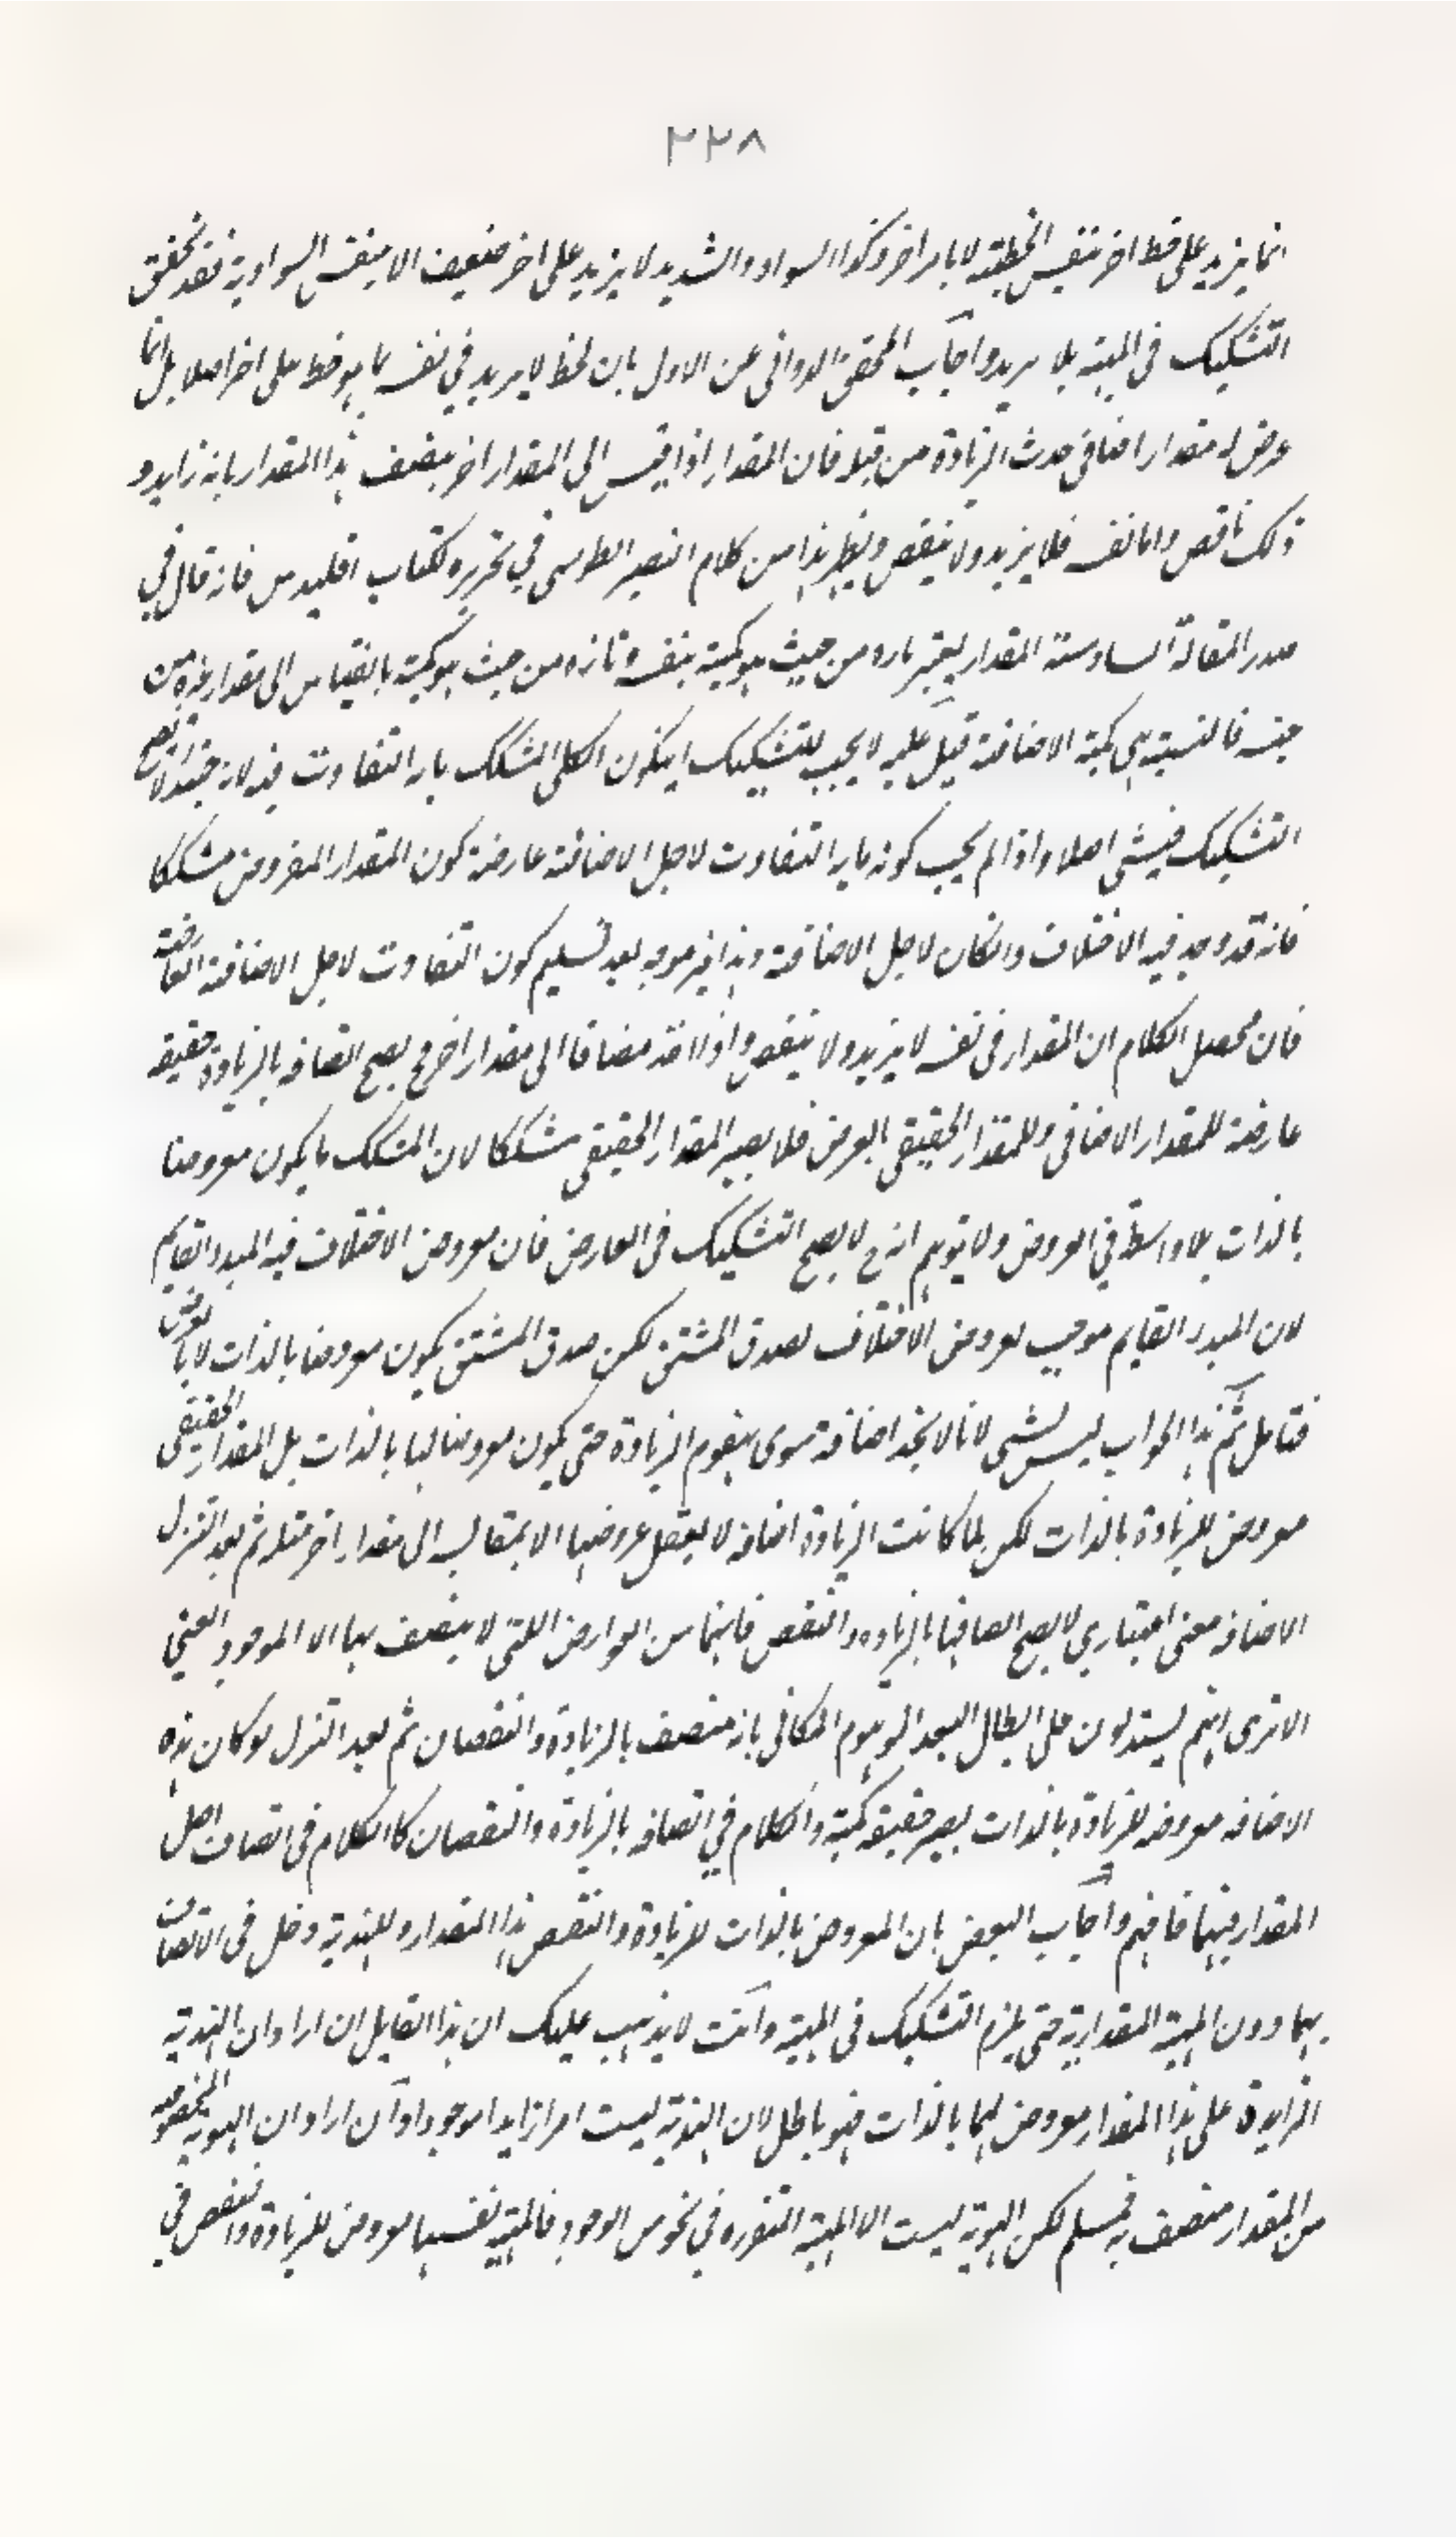 ٢٢٨
انما يزيد على خط اخر بنفس الخطية لا بامر اخر وكذا السواد والشديد لا يزيد على اخر ضعيف الا بنفس السوادية فقد تحقق
التشكيك في المهية بلا مريد واجاب المحقق الدواني عن الاول بان الخط لا يزيد في نفسه بما هو خط على اخر اصلا بل انما
عرض له مقدار اضافي حدث الزيادة من قبله فان المقدار اذا قيس الى المقدار اخر يتصف هذا المقدار بانه زايد و
ذلك ناقص واما نفسه فلا يزيد ولا ينقص ويظهر هذا من كلام النصير الطوسي في تحريره لكتاب اقليدس فانه قال في
صدر المقالة السادسة المقدار يعتبر تارة من حيث هو كمية بنفسه وتارة من حيث هو كمية بالقياس الى مقدار غيره من
جنسه فالنسبة هي كمية الاضافة قيل عليه لا يجب للتشكيك ان يكون الكلي المشكك بابه التفاوت فيه لانه حينئذ لا يصح
التشكيك في شي اصلا واذا لم يجب كونه مابه التفاوت لاجل الاضافة عارضة كون المقدار المفروض مشككا
فانه قد وجد فيه الاختلاف وان كان لاجل الاضافة وهذا غير موجه بعد تسليم كون التفاوت لاجل الاضافة العارضة
فان محصل الكلام ان المقدار في نفسه لا يزيد ولا ينقص واذا اخذ مضافا الى مقدار اخر فح يصح اتصافه بالزيادة حقيقة
عارضة للمقدار الاضافي وللمقدار الحقيقي بالعرض فلا يصير المقدار الحقيقي مشككا لان المشكك ما يكون معروضا
بالذات بلا واسطة في العروض ولا يتوهم انه ح لا يصح التشكيك في العارض فان معروض الاختلاف فيه المبدء القايم
لان المبدء القايم موجب لعروض الاختلاف لصدق المشتق لكن صدق المشتق يكون معروضا بالذات لا بالعرض
فتامل ثم هذا الجواب ليس بشي لانا لا نجد اضافة سوى مفهوم الزيادة حتى يكون معروضا لها بالذات بل المقدار الحقيقي
معروض للزيادة بالذات لكن لما كانت الزيادة اضافة لا يعقل عروضها الا بمقايسة الى مقدار اخر مثله ثم بعد التنزل
الاضافة معنى اعتباري لا يصح اتصافها بالزيادة والنقص فانهما من العوارض التي لا يتصف بها الا الموجود العيني
الا ترى انهم يستدلون على ابطال البعد الموهوم المكاني بانه متصف بالزيادة والنقصان ثم بعد التنزل لو كان هذه
الاضافة معروضة للزيادة بالذات يصير حقيقة كمية والكلام في اتصافه بالزيادة والنقصان كالكلام في اتصاف اصل
المقدار فيهما فافهم واجاب البعض بان المعروض بالذات للزيادة والنقص هذا المقدار وللهذية دخل في الاتصاف
بهما دون المهية المقدارية حتى يلزم التشكيك في المهية وانت لا يذهب عليك ان هذا القايل ان اراد ان الهذية
الزايدة على هذا المقدار معروض لهما بالذات فهو باطل لان الهذية ليست امرا زايدا موجودا وان اراد ان الهوية المخصوصة
من المقدار متصف به فمسلم لكن الهوية ليست الا المهية المتقررة في نحو من الوجود فالمهية نفسها معروض للزيادة والنقص في